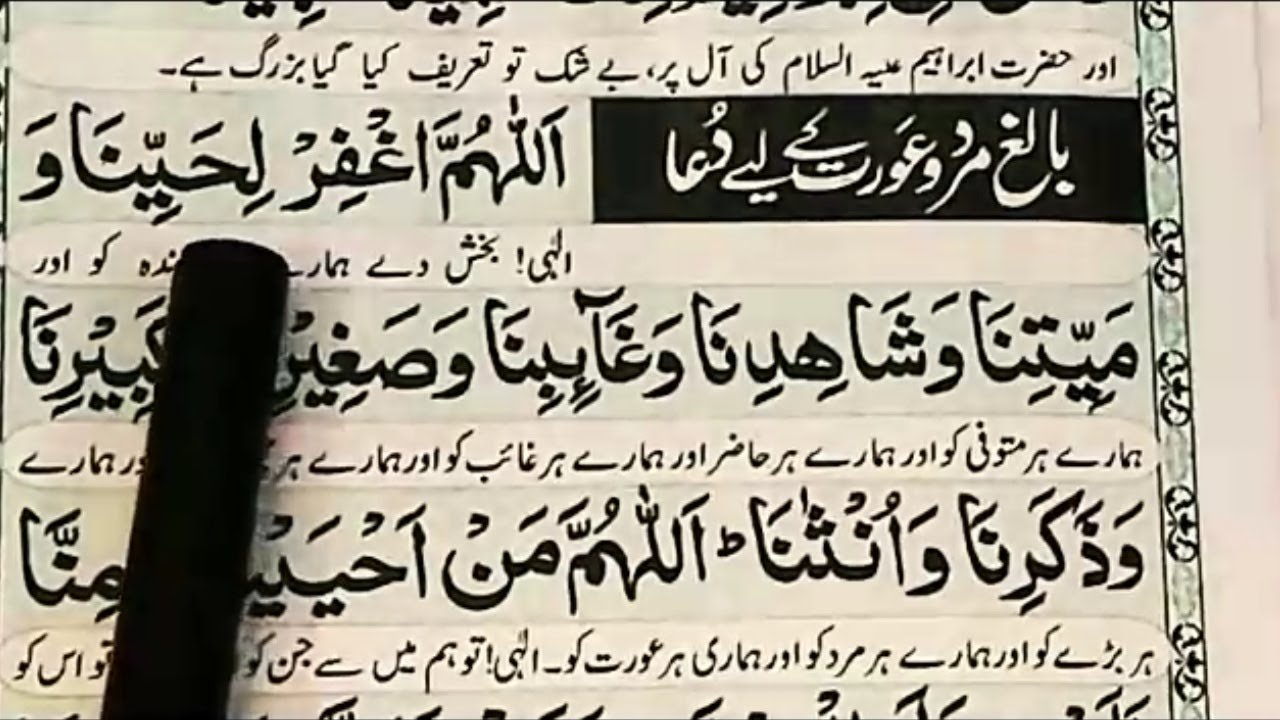 اور حضرت ابراہیم علیہ السلام کی آل پر، بے شک تو تعریف کیا گیا بزرگ ہے۔
بالغ مرد و عورت کے لیے دُعا
اَللّٰهُمَّ اغْفِرْ لِحَيِّنَا وَ
الٰہی! بخش دے ہمارے کو اور
مَيِّتِنَا وَشَاهِدِنَا وَغَآئِبِنَا وَصَغِيْرِ كَبِيْرِنَا
ہمارے ہر متوفی کو اور ہمارے ہر حاضر اور ہمارے ہر غائب کو اور ہمارے ہر ہمارے
وَذَكَرِنَا وَاُنْثٰنَا ؕ اَللّٰهُمَّ مَنْ اَحْيَيْ مِنَّا
ہر بڑے کو اور ہمارے ہر مرد کو اور ہماری ہر عورت کو۔ الٰہی! تو ہم میں سے جس کو تو اس کو